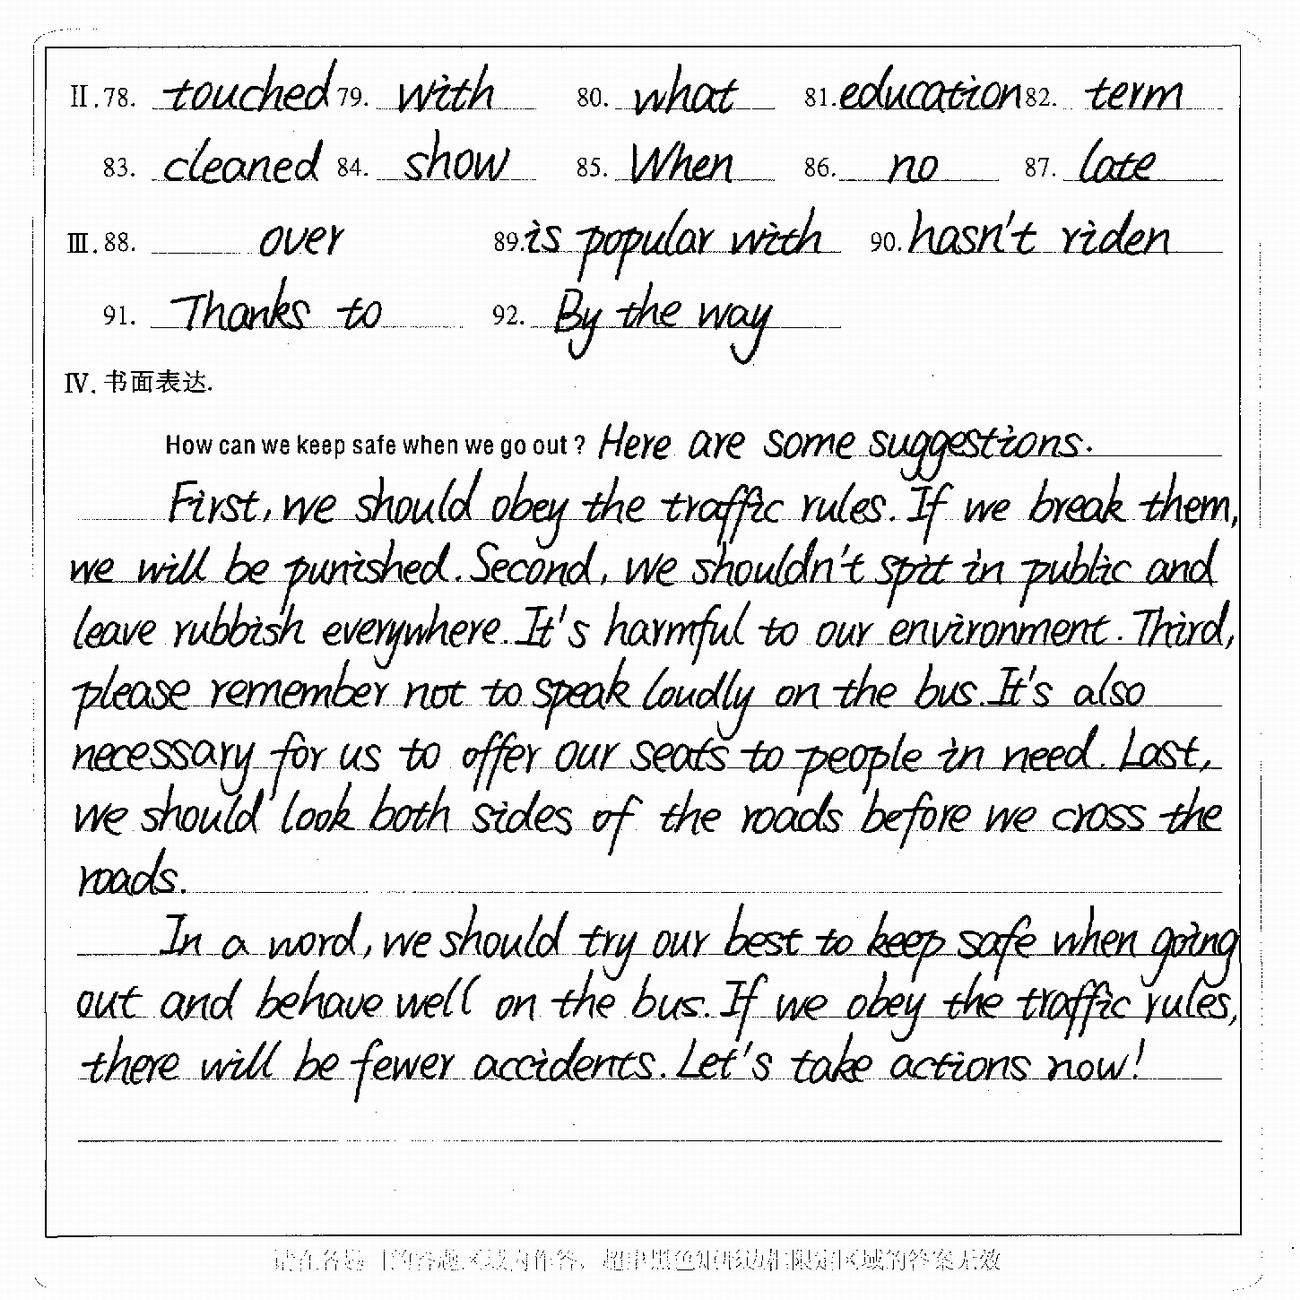 II.78. touched 79. with 80. what 81. education 82. term
83. cleaned 84. show 85. When 86. no 87. late
III.88. over 89. is popular with 90. hasn't riden
91. Thanks to 92. By the way
IV. 书面表达.
How can we keep safe when we go out? Here are some suggestions.
First, we should obey the traffic rules. If we break them,
we will be punished. Second, we shouldn't spit in public and
leave rubbish everywhere. It's harmful to our environment. Third,
please remember not to speak loudly on the bus. It's also
necessary for us to offer our seats to people in need. Last,
we should look both sides of the roads before we cross the
roads.
In a word, we should try our best to keep safe when going
out and behave well on the bus. If we obey the traffic rules,
there will be fewer accidents. Let's take actions now!
请在各题目的答题区域内作答，超出黑色矩形边框限定区域的答案无效